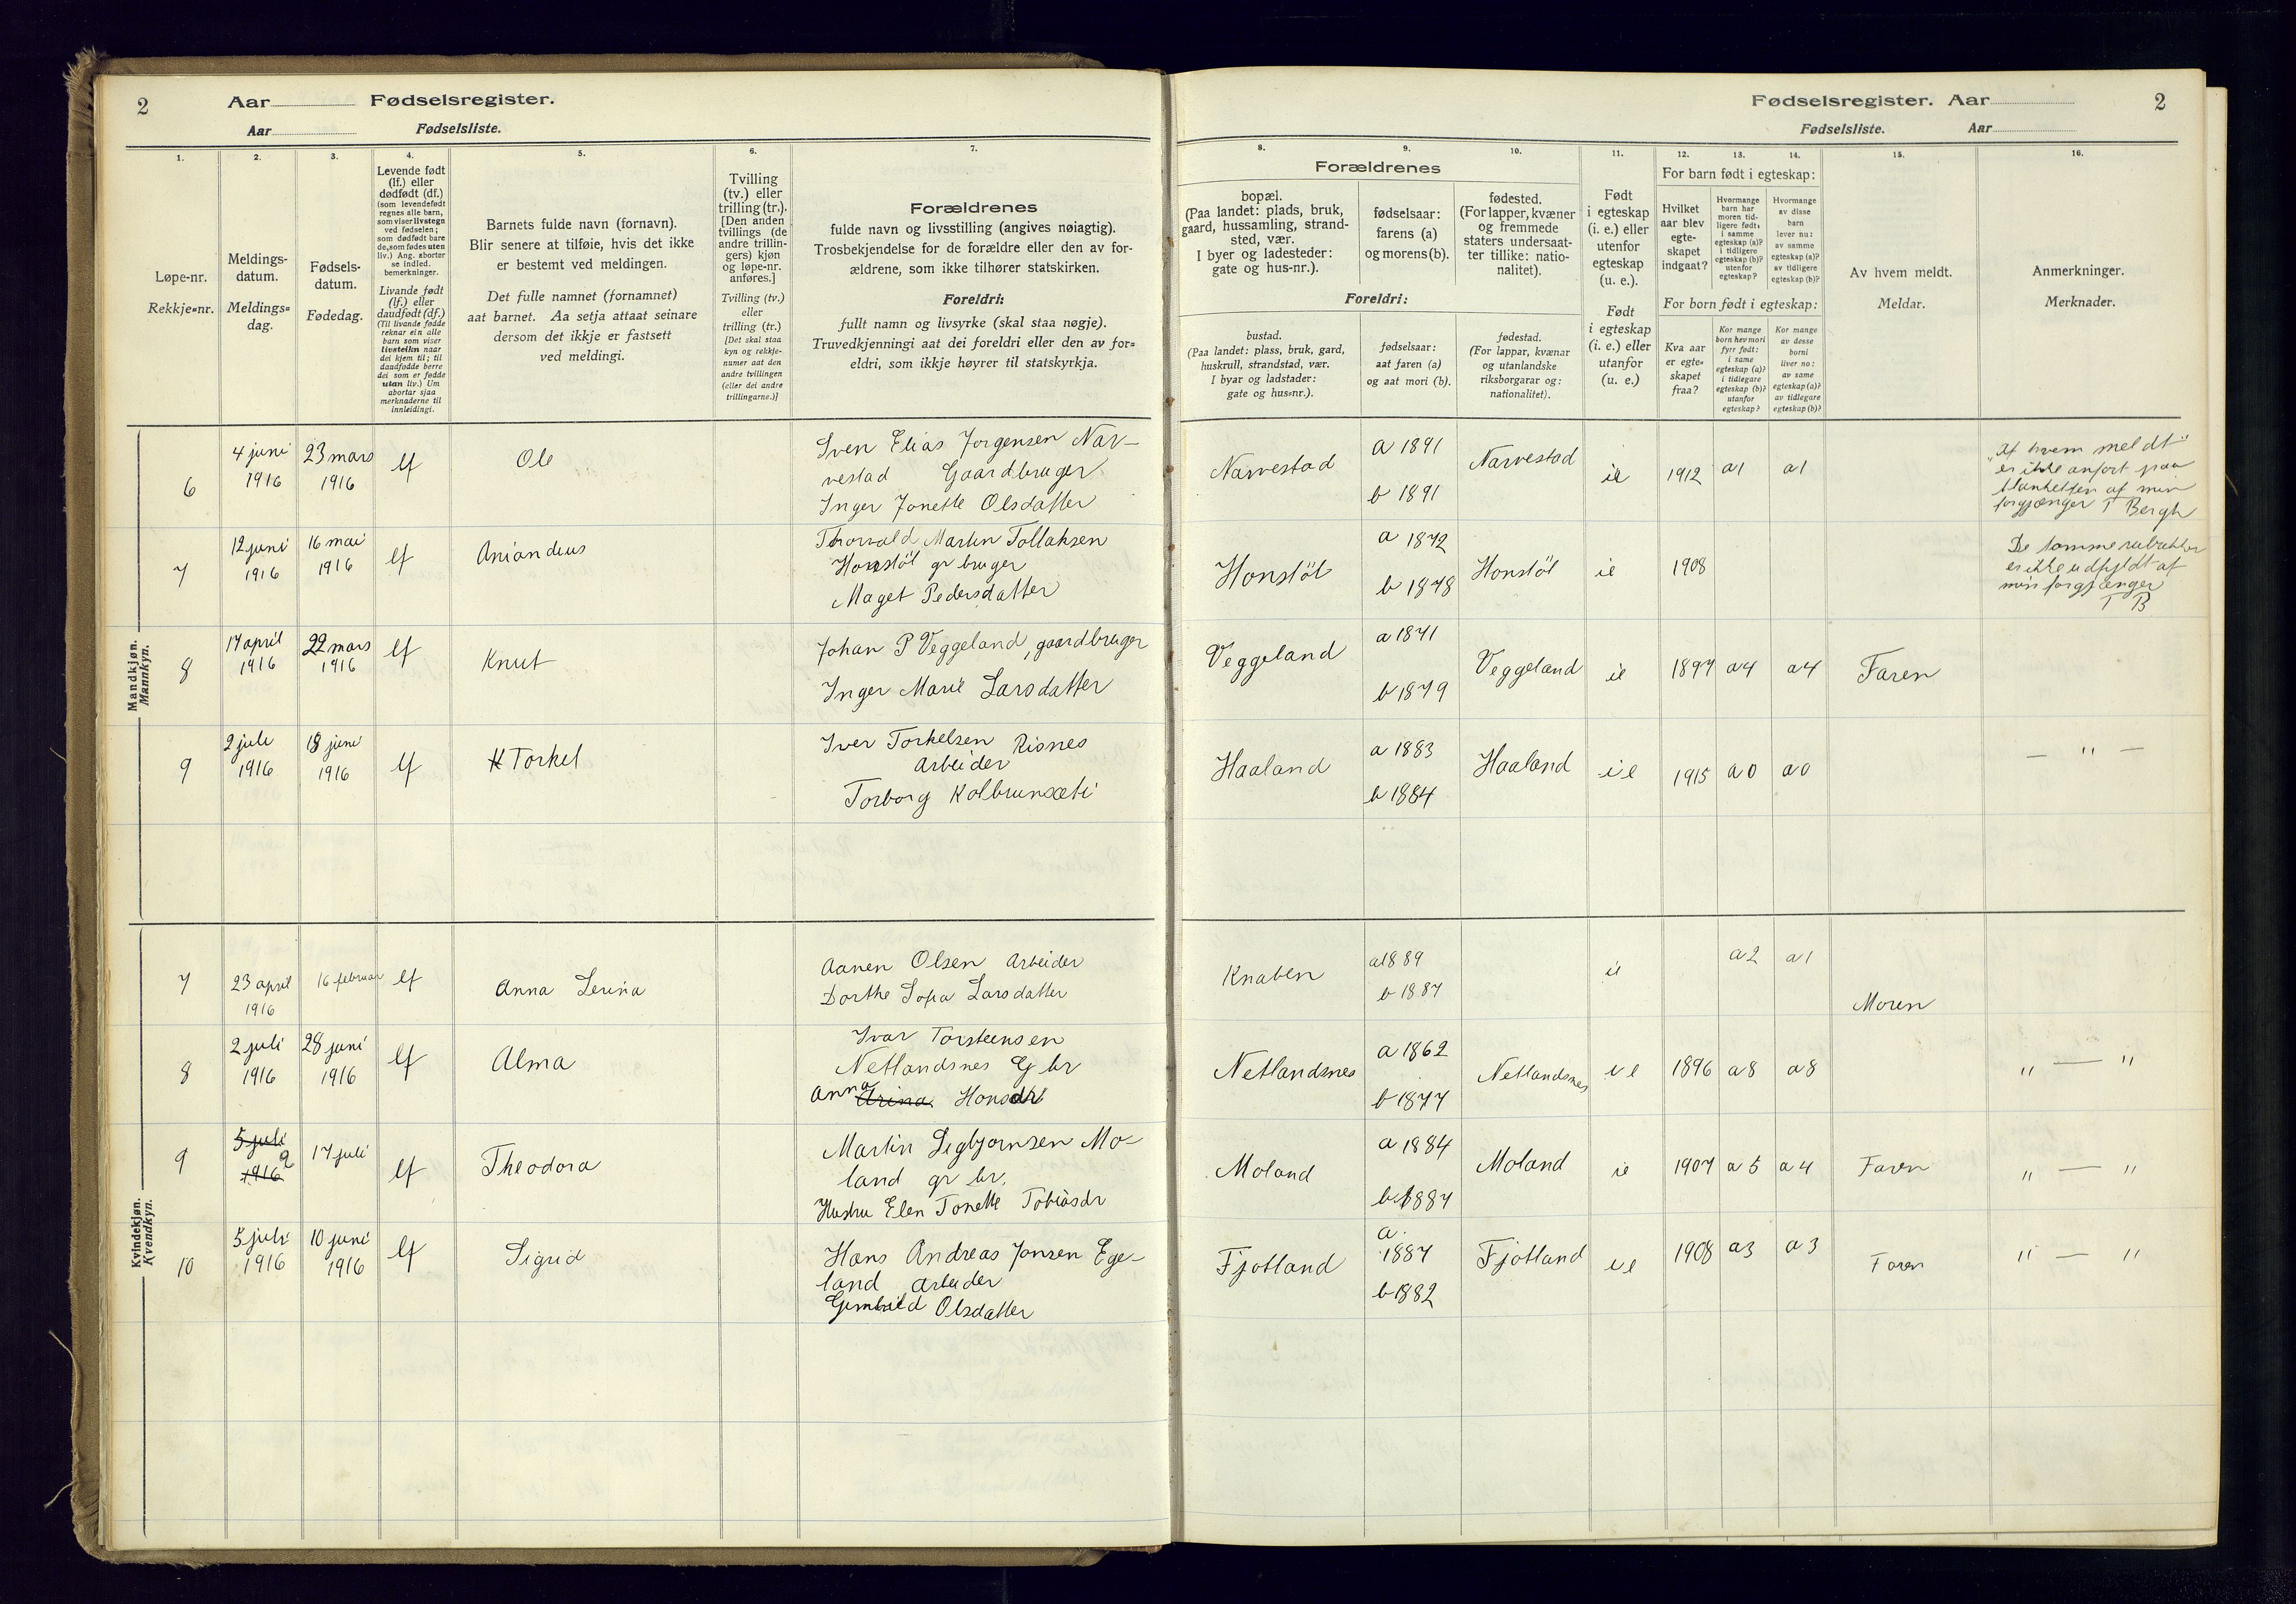 2 Aar Fødselsregister.
Aar Fødselsliste.
Fødselsregister. Aar 2
Fødselsliste. Aar
1.
Løpe-nr.
Rekkje=nr.
2.
Meldings-
datum.
Meldings=
dag.
3.
Fødsels-
datum.
Fødedag.
4.
Levende født
(lf.) eller
dødfødt (df.)
(som levendefødt
regnes alle barn,
som viser livstegn
ved fødselen;
som dødfødt bare
de, som fødes uten
liv.) Ang. aborter
se indled.
bemerkninger.
Livande født
(lf.) eller
daudfødt (df.)
(Til livande fødde
reknar ein alle
barn som viser
livsteikn naar
dei kjem til; til
daudfødde berre
dei som er fødde
utan liv.) Um
abortar sjaa
merknaderne til
innleidingi.
5.
Barnets fulde navn (fornavn).
Blir senere at tilføie, hvis det ikke
er bestemt ved meldingen.
Det fulle namnet (fornamnet)
aat barnet. Aa setja attaat seinare
dersom det ikkje er fastsett
ved meldingi.
6.
Tvilling
(tv.) eller
trilling (tr.).
[Den anden
tvillings (de
andre trillin-
gers) kjøn
og løpe-nr.
anføres.]
Tvilling (tv.)
eller
trilling (tr.)
[Det skal staa
kyn og rekkje-
numer aat den
andre tvillingen
(eller dei andre
trillingarne.)]
7.
Forældrenes
fulde navn og livsstilling (angives nøiagtig).
Trosbekjendelse for de forældre eller den av for-
ældrene, som ikke tilhører statskirken.
Foreldri:
fullt namn og livsyrke (skal staa nøgje).
Truvedkjenningi aat dei foreldri eller den av for=
eldri, som ikkje høyrer til statskyrkja.
Forældrenes
8.
bopæl.
(Paa landet: plads, bruk,
gaard, hussamling, strand-
sted, vær.
I byer og ladesteder:
gate og hus-nr.).
9.
fødselsaar:
farens (a)
og morens (b).
10.
fødested.
(For lapper, kvæner
og fremmede
staters undersaat-
ter tillike: natio-
nalitet).
Foreldri:
bustad.
(Paa landet: plass, bruk, gard,
huskrull, strandstad, vær.
I byar og ladstader:
gate og hus=nr.).
fødselsaar:
aat faren (a)
og aat mori (b).
fødestad.
(For lappar, kvænar
og utanlandske
riksborgarar og:
nationalitet).
11.
Født
i egteskap
(i. e.) eller
utenfor
egteskap
(u. e.).
Født
i egteskap
(i. e.) eller
utanfor
(u. e.)
For barn født i egteskap:
12.
Hvilket
aar blev
egte-
skapet
indgaat?
13.
Hvormange
barn har
moren tid-
ligere født:
i samme
egteskap (a)?
i tidligere
egteskap (b)?
utenfor
egteskap?
14.
Hvormange
av disse
barn
lever nu:
av samme
egteskap (a)?
av tidligere
egteskap (b)?
For born født i egteskap:
Kva aar
er egte-
skapet
fraa?
Kor mange
born hev mori
fyrr født:
i same
egteskap (a)?
i tidlegare
egteskap (b)?
utanfor
egteskap?
Kor mange
av desse
borni
liver no:
av same
egteskap (a)?
av tidlegare
egteskap (b)?
15.
Av hvem meldt.
Meldar.
16.
Anmerkninger.
Merknader.
Mandkjøn.
Mannkyn.
6 4 juni 1916 23 mars 1916 lf Ole
Sven Elias Jorgensen Nar-
vestad Gaardbruger
Inger Jonette Olsdatter
Narvestad a 1891 b 1891 Narvestad ie 1912 a1 a1
"Af hvem meldt"
er ikke anført paa
blanketten af min
forgjænger T Bergh
7 12 juni 1916 16 mai 1916 lf
Thorvald Martin Tollaksen
Honstöl gr bruger
Maget Pedersdatter
Honstöl a 1872 b 1878 Honstöl ie 1908
De tomme rubrikker
er ikke udfyldt af
min forgjænger
T B
8 17 april 1916 22 mars 1916 lf Knut
Johan P Veggeland, gaardbruger
Inger Marie Larsdatter
Veggeland a 1871 b 1879 Veggeland ie 1897 a4 a4 Faren
9 2 juli 1916 18 juni 1916 lf Torkel
Iver Torkelsen Risnes
Arbeider
Torborg Kolbrunsæti
Haaland a 1883 b 1884 Haaland ie 1915 a0 a0 — " —
Kvindekjøn.
Kvendkyn.
7 23 april 1916 16 februar lf Anna Serina
Aanen Olsen Arbeider
Dorthe Sofia Larsdatter
Knaben a 1889 b 1887 ie a2 a1 Moren
8 2 juli 1916 28 juni 1916 lf Alma
Ivar Torsteensen
Netlandsnes G br
Anna Arina Honsdr
Netlandsnes a 1862 b 1877 Netlandsnes ie 1896 a8 a8 " — "
9 5 juli 1916 2 17 juli lf Theodora
Martin Sigbjornsen Mo-
land gr br.
Hustru Elen Tonette Tobiasdr
Moland a 1884 b 1887 Moland ie 1907 a5 a4 Faren " — "
10 5 juli 1916 10 juni 1916 lf Sigrid
Hans Andreas Jonsen Ege-
land Arbeider
Olsdatter
Fjotland a. 1887 b 1882 Fjotland ie 1908 a3 a3 Faren " — "